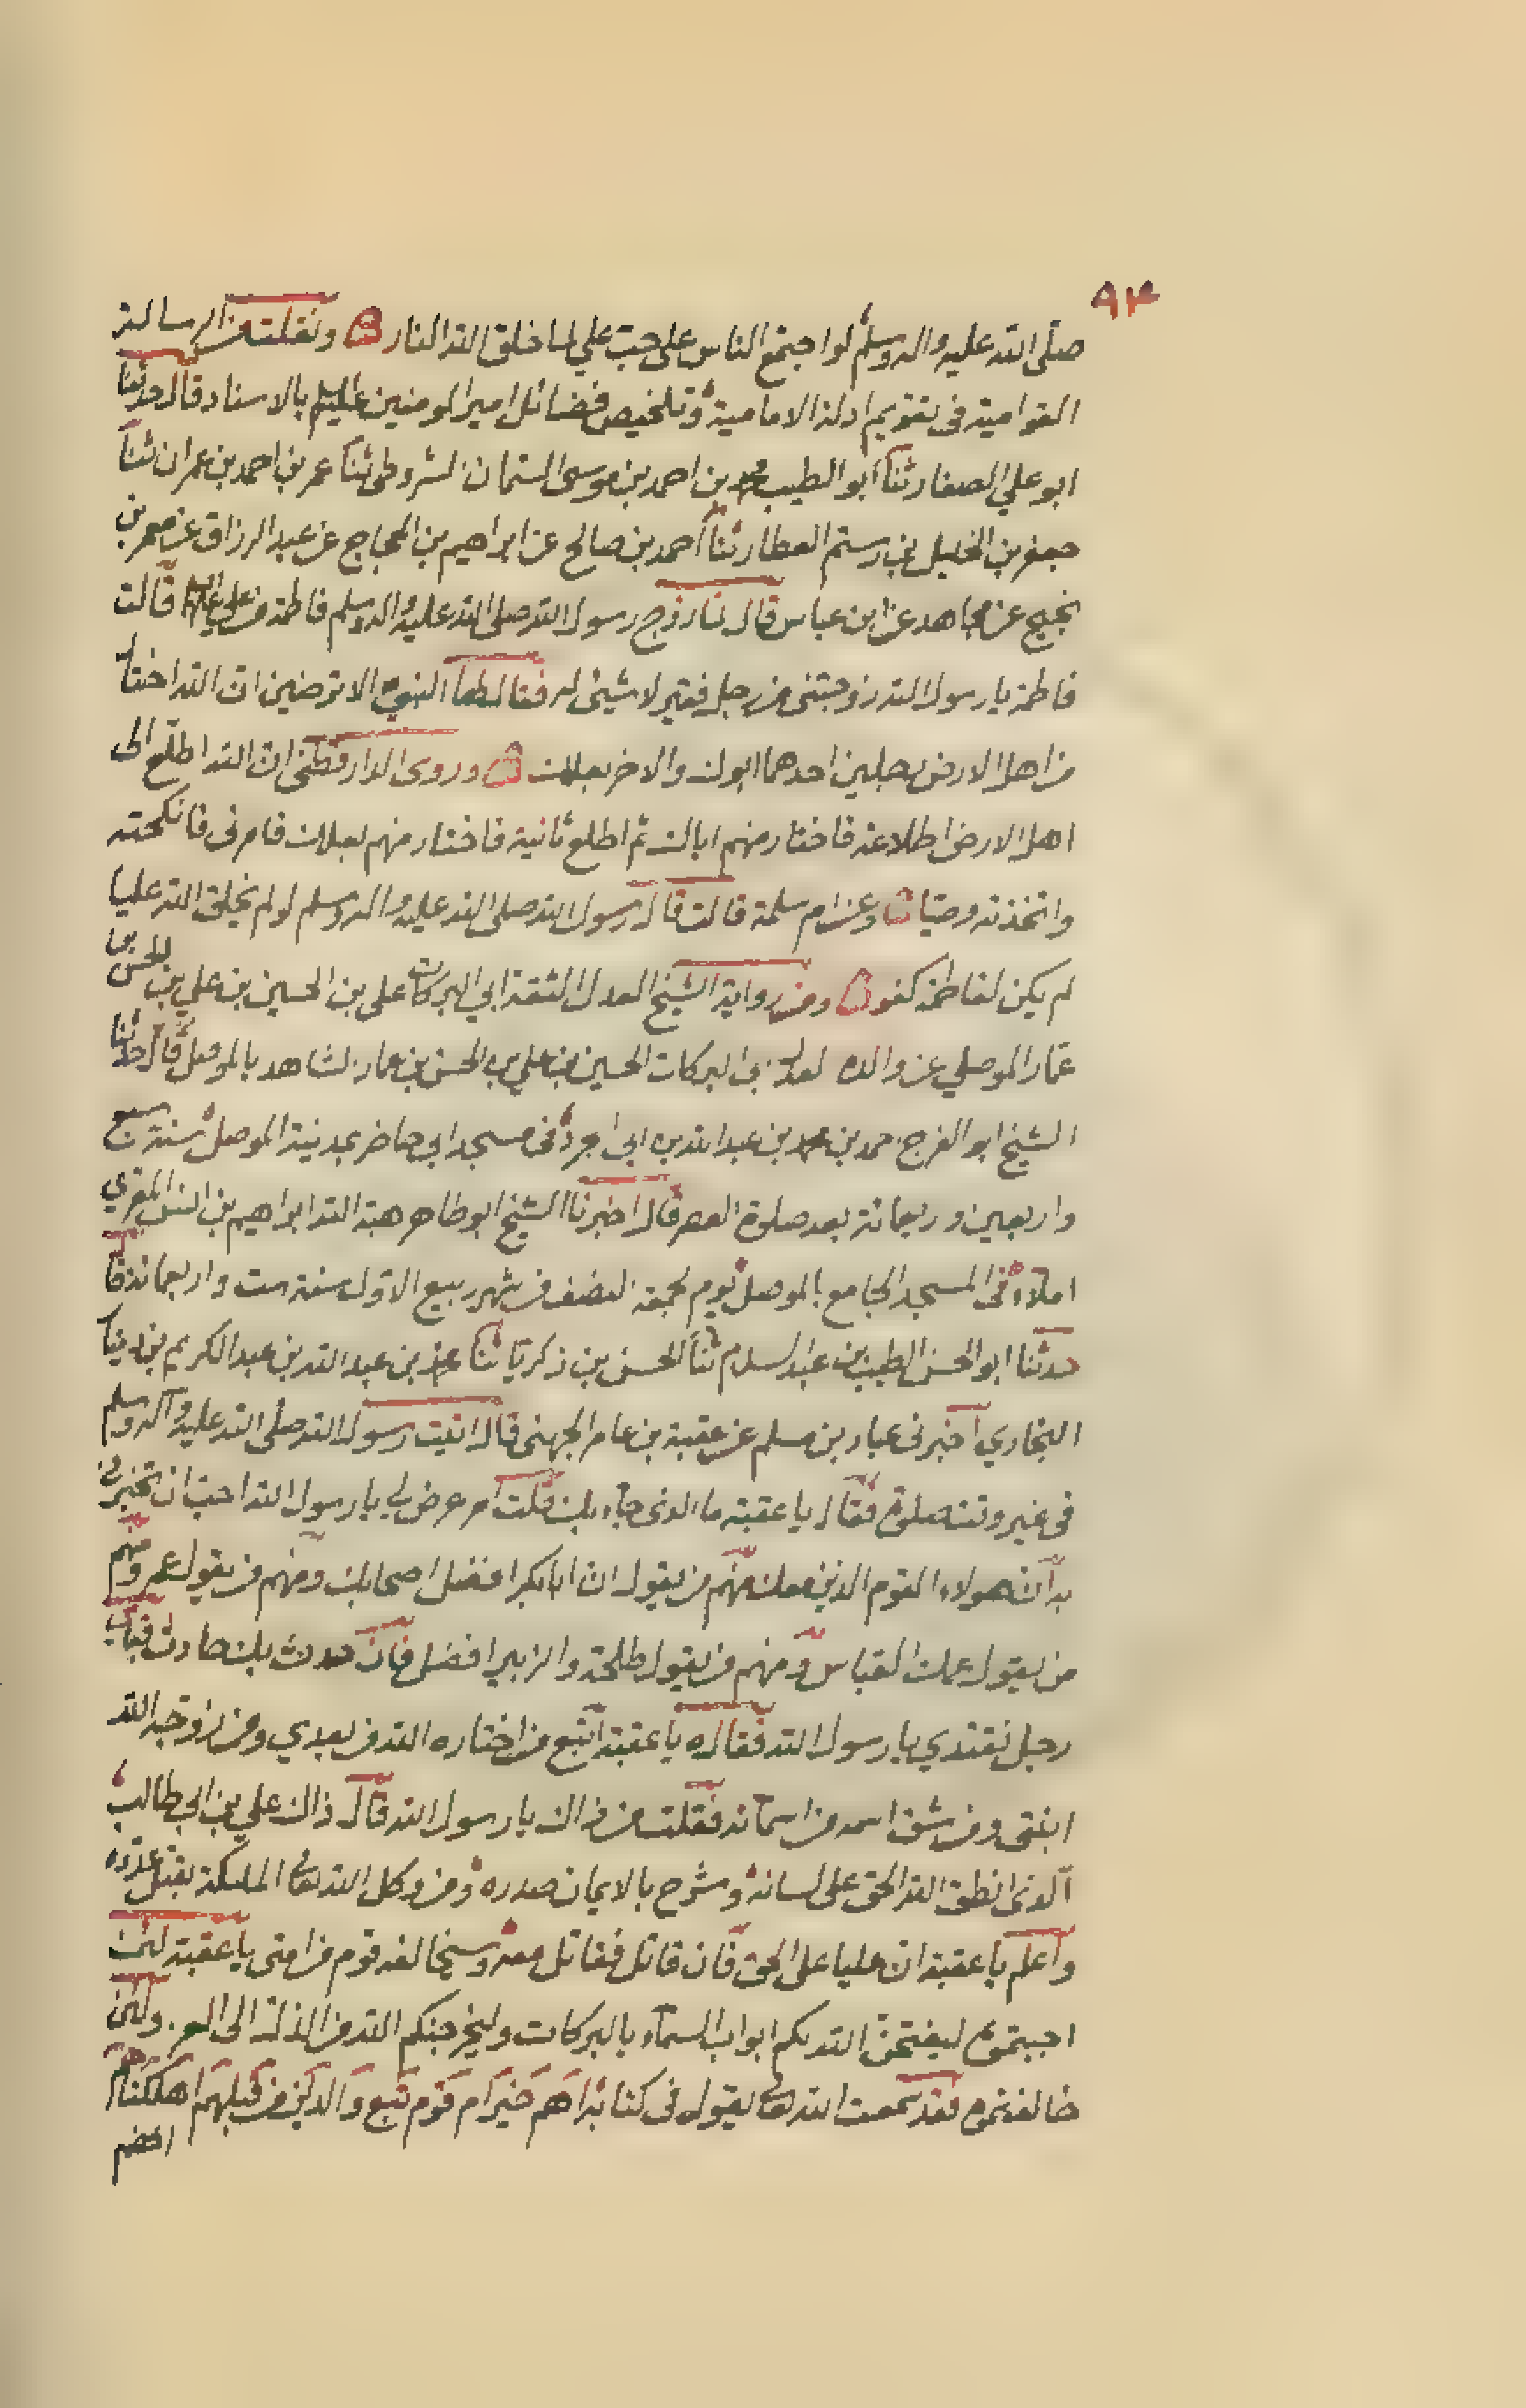 ٩٣
صلى الله عليه واله وسلم لو اجتمع الناس على حب علي لما خلق الله النار ونقلت من الرسالة
القوامية في تقويم ادلة الامامية وتلخيص فضائل امير المومنين عليه السلام بالاسناد قال حدثنا
ابو علي الصفار ثنا ابو الطيب محمد بن احمد بن موسى السمان الشروطي ثنا عمر بن احمد بن عمران ثنا
جعفر بن الخليل بن رستم العطار ثنا احمد بن صالح عن ابراهيم بن الحجاج عن عبد الرزاق عن معمر بن
نجيح عن مجاهد عن ابن عباس قال لما زوج رسول الله صلى الله عليه واله وسلم فاطمة من علي قالت
فاطمة يا رسول الله زوجتني من رجل فقير لا شيئ له فقال لها النبي الا ترضين ان الله اختار
من اهل الارض رجلين احدهما ابوك والاخر بعلك وروى الدارقطني ان الله اطلع الى
اهل الارض اطلاعة فاختار منهم اباك ثم اطلع ثانية فاختار منهم بعلك فامرني فانكحته
واتخذته وصيا وعن ام سلمة قالت قال رسول الله صلى الله عليه واله وسلم لو لم يخلق الله عليا
لم يكن لفاطمة كفو ومن رواية الشيخ العدل الثقة ابي البركات علي بن الحسين بن علي بن الحسن بن
عمار الموصلي عن والده ابي البركات الحسين بن علي بن الحسن بن عمار الشاهد بالموصل قال حدثنا
الشيخ ابو الفرج احمد بن محمد بن عبد الله بن ابي في مسجد ابي حاضر بمدينة الموصل سنة سبع
واربعين واربعمائة بعد صلوة العصر قال اخبرنا الشيخ ابو طاهر هبة الله ابراهيم بن المقري
املاء في المسجد الجامع بالموصل يوم الجمعة النصف من شهر ربيع الاول سنة ست واربعمائة قا
حدثنا ابو الحسن الطيب بن عبد السلام ثنا الحسن بن زكريا ثنا محمد بن عبد الله بن عبد الكريم بن دينار
البخاري اخبرني عباد بن مسلم عن عقبة بن عامر الجهني قال اتيت رسول الله صلى الله عليه واله وسلم
في غير وقت صلوة فقال يا عقبة ما الذي جاء بك قلت امر عرض لي يا رسول الله احب ان تخبرني
به ان هولاء القوم الذين معك منهم من يقول ان ابا بكر افضل اصحابك ومنهم من يقول عمر ومنهم
من يقول عمك العباس ومنهم من يقول طلحة والزبير افضل فان حدث بك حادث فباي
رجل نقتدي يا رسول الله فقال يا عقبة اتبع من اختاره الله من بعدي ومن زوجه الله
ابنتي ومن شق اسمه من اسمائه فقلت من ذاك يا رسول الله قال ذاك علي بن ابي طالب
الذي انطق الله الحق على لسانه وشرح بالايمان صدره ومن وكل الله تعالى الملئكة بقتل عدوه
واعلم يا عقبة ان عليا على الحق فان قاتل فقاتل معه وسيخالفه قوم من امتي يا عقبة لئن
احببتموه ليفتحن الله لكم ابواب السماء بالبركات وليخرجنكم الله من الذلة الى العز ولئن
خالفتموه فقد سمعت الله تعالى يقول في كتابه اهم خير ام قوم تبع والذين من قبلهم اهلكناهم
انهم